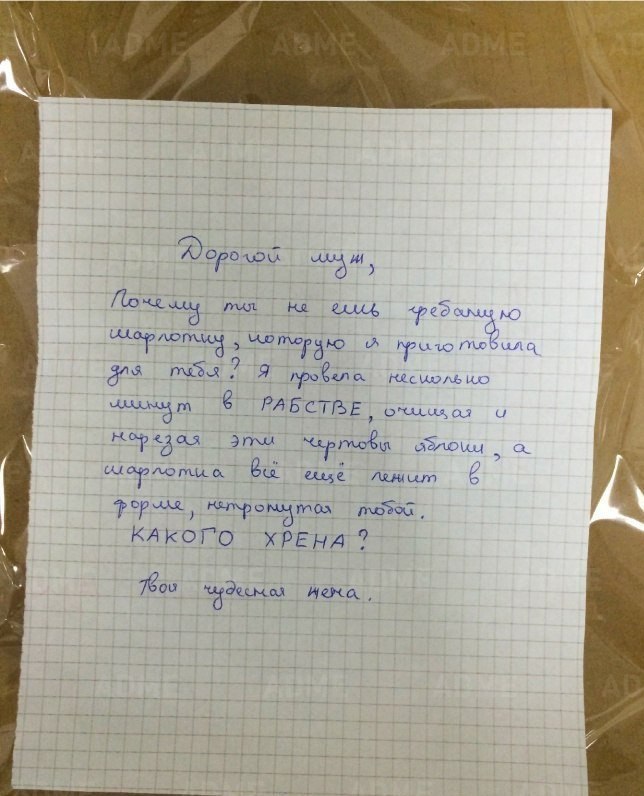 ADME ADME ADME
Дорогой муж,
Почему ты не ешь гребаную
шарлотку, которую я приготовила
для тебя? Я провела несколько
минут в РАБСТВЕ, очищая и
нарезая эти чертовы яблоки, а
шарлотка всё ещё лежит в
форме, нетронутая тобой.
КАКОГО ХРЕНА?
Твоя чудесная жена.
ADME ADME AD